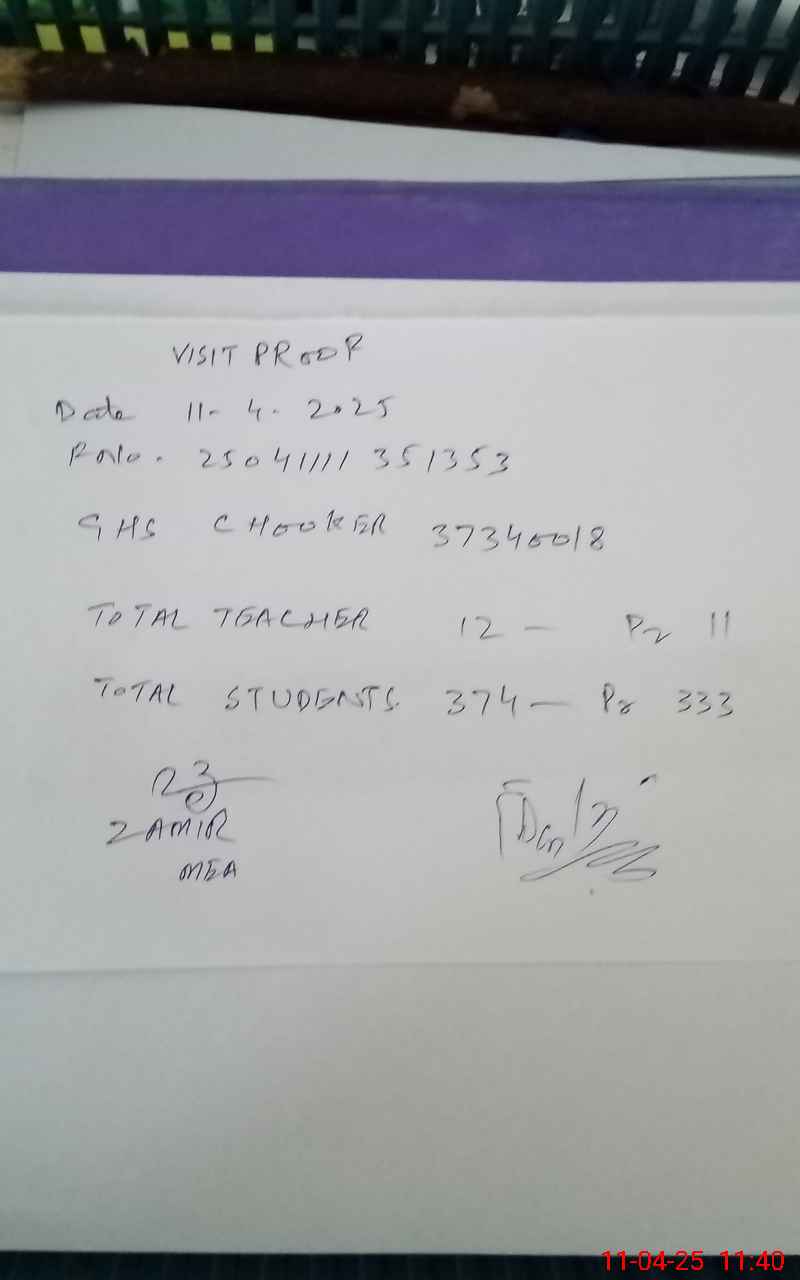 VISIT PROOF
Date 11-4.2025
R No. 25041111351353
GHS CHOOKER 37340018
TOTAL TEACHER 12 — Pr 11
TOTAL STUDENTS. 374 — Pr 333
ZAMIR
MEA
11-04-25 11:40